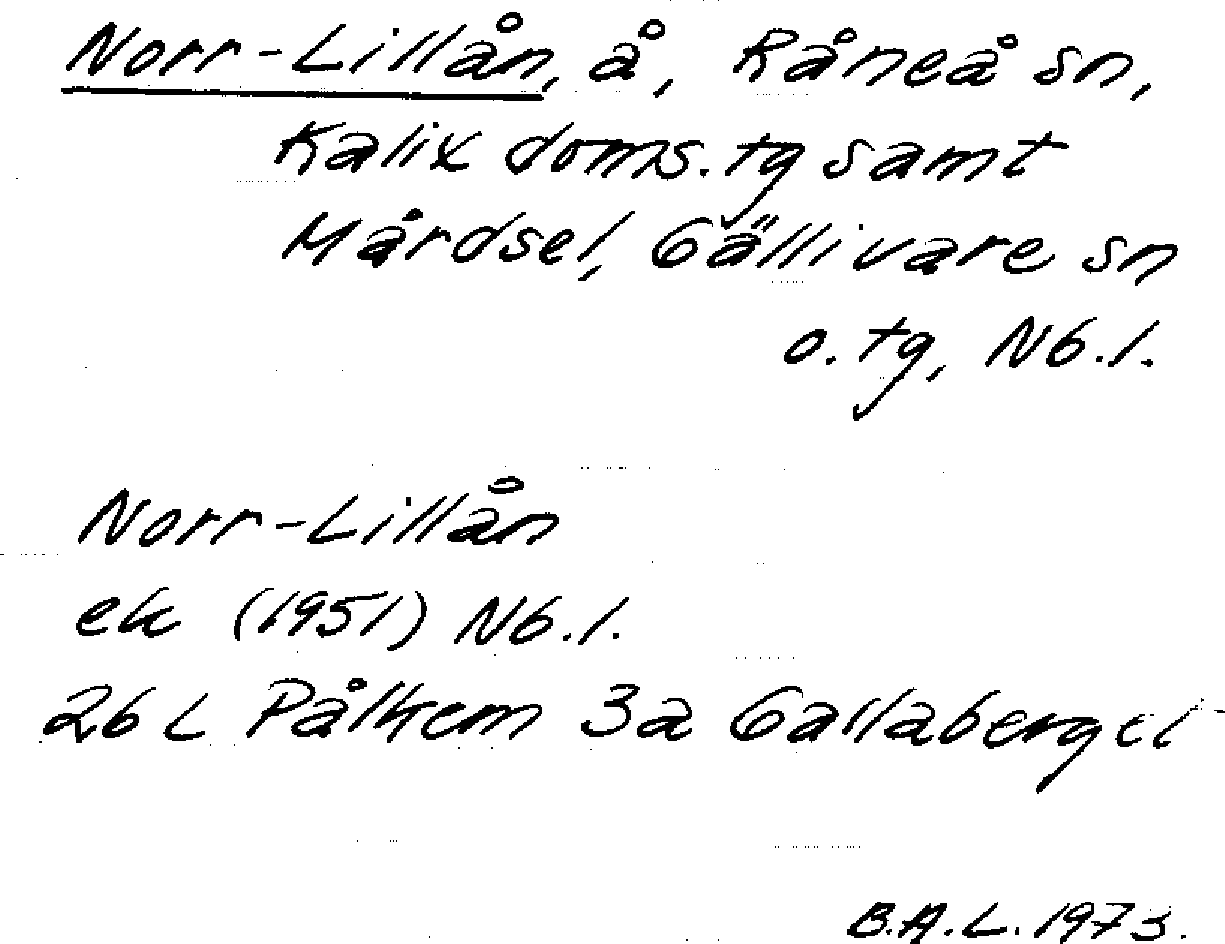 Norr-Lillån, å, Råneå sn,
Kalix doms.tg samt
Mårdsel, Gällivare sn
o. tg, Nb.l.
Norr-Lillån
ek (1951) Nb.l.
26 L Pålkem 3a Gallaberget
B.A.L. 1973.